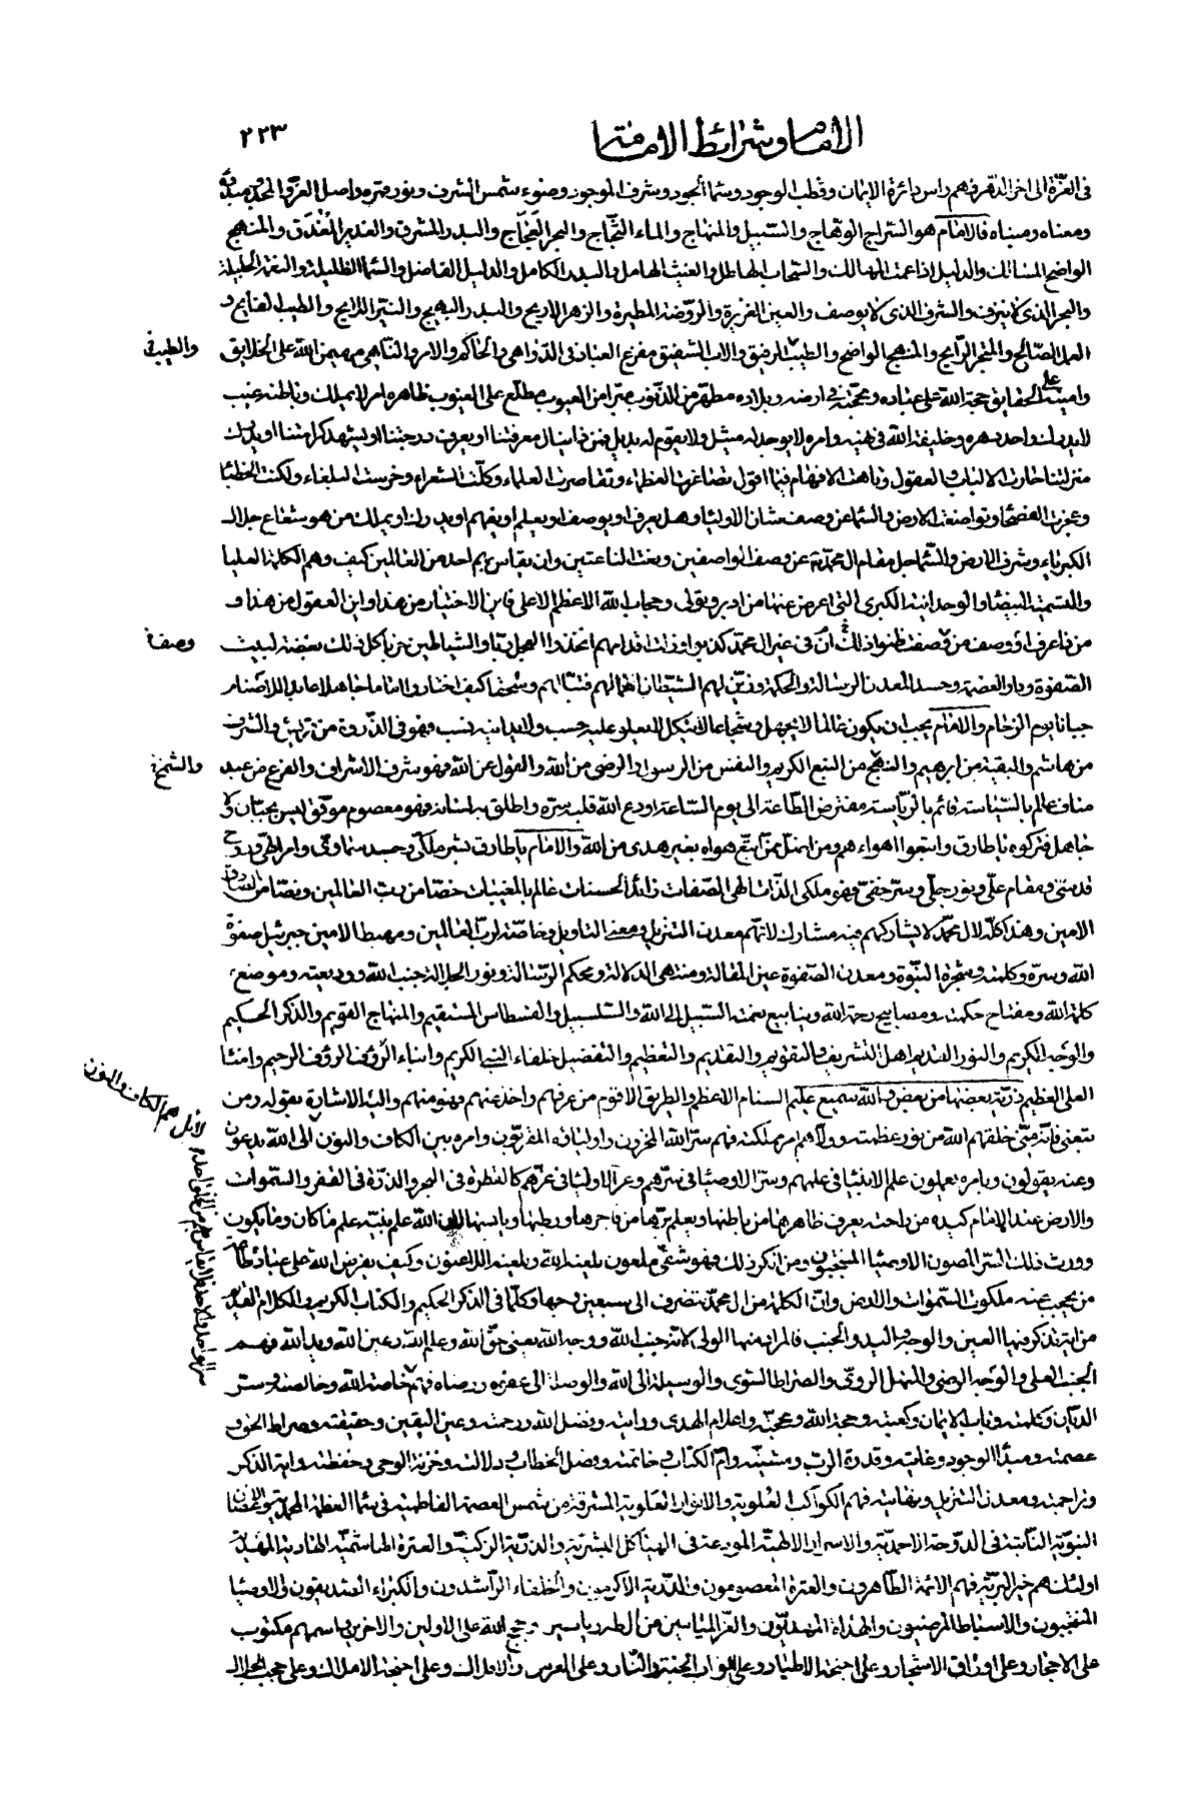 الإمام وشرائط الإمامة
٢٢٣
في العزة الى اخر الدهر فهم راس دائرة الايمان وقطب الوجود وسماء الجود وشرف الموجود وضوء شمس الشرف ونور قمره واصل العز والمجد ومبدئه
ومعناه ومبناه فالامام هو السراج الوهاج والسبيل والمنهاج والماء الثجاج والبحر العجاج والبدر المشرق والغدير المغدق والمنهج
الواضح المسالك والدليل اذا عمت المهالك والسحاب الهاطل والغيث الهامل والبدر الكامل والدليل الفاضل والسماء الظليلة والنعمة الجليلة
والبحر الذي لا ينزف والشرف الذي لا يوصف والعين الغزيرة والروضة المطيرة والزهر الاريج والبدر البهيج والنير اللائح والطيب الفائح و
العمل الصالح والمتجر الرابح والمنهج الواضح والطيب الرفيق والاب الشفيق مفزع العباد في الدواهي والحاكم والامر والناهي مهيمن الله على الخلايق
والطبيب
وامينه على الحقايق حجة الله على عباده ومحجته في ارضه وبلاده مطهر من الذنوب مبرا من العيوب مطلع على الغيوب ظاهره امر لا يملك وباطنه غيب
لا يدرك واحد دهره وخليفة الله في نهيه وامره لا يوجد له مثيل ولا يقوم له بديل فمن ذا ينال معرفتنا او يعرف درجتنا او يشهد كرامتنا او يدرك
منزلتنا حارت الالباب والعقول وتاهت الافهام فيما اقول تصاغرت العظماء وتقاصرت العلماء وكلت الشعراء وخرست البلغاء ولكنت الخطباء
وعجزت الفصحاء وتواضعت الارض والسماء عن وصف شان الاولياء وهل يعرف او يوصف او يعلم او يفهم او يدرك او يملك من هو شعاع جلال
الكبرياء وشرف الارض والسماء جل مقام ال محمد عن وصف الواصفين ونعت الناعتين وان يقاس بهم احد من العالمين كيف وهم الكلمة العليا
والتسمية البيضاء والوحدانية الكبرى التي اعرض عنها من ادبر وتولى وحجاب الله الاعظم الاعلى فاين الاختيار من هذا واين العقول من هذا و
من ذا عرف او وصف من وصفت ظنوا ان ذلك في غير ال محمد كذبوا وزلت اقدامهم اتخذوا العجل ربا والشياطين حزبا كل ذلك بغضة لبيت
وصفا
الصفوة ودار العصمة وحسدا لمعدن الرسالة والحكمة وزين لهم الشيطان اعمالهم فتبا لهم وسحقا كيف اختاروا اماما جاهلا عابدا للاصنام
جبانا يوم الزحام والامام يجب ان يكون عالما لا يجهل وشجاعا لا ينكل لا يعلو عليه حسب ولا يدانيه نسب فهو في الذروة من قريش والشرف
من هاشم والبقية من ابرهيم والنهج من النبع الكريم والنفس من الرسول والرضى من الله والقول عن الله فهو شرف الاشراف والفرع من عبد
مناف عالم بالسياسة قائم بالرياسة مفترض الطاعة الى يوم الساعة اودع الله قلبه سره واطلق به لسانه فهو معصوم موفق ليس بجبان ولا
جاهل فتركوه يا طارق واتبعوا اهواءهم ومن اضل ممن اتبع هواه بغير هدى من الله والامام يا طارق بشر ملكي وجسد سماوي وامر الهي وروح
قدسي ومقام علي ونور جلي وسر خفي فهو ملكي الذات الهي الصفات زائد الحسنات عالم بالمغيبات خصا من رب العالمين ونصا من الصادق
الامين وهذا كله لال محمد لا يشاركهم فيه مشارك لانهم معدن التنزيل ومعنى التاويل وخاصة الرب العالمين ومهبط الامين جبرئيل صفوة
الله وسره وكلمته وشجرة النبوة ومعدن الصفوة عين المقالة ومنتهى الدلالة ومحكم الرسالة ونور الجلالة جنب الله ووديعته وموضع
كلمة الله ومفتاح حكمته ومصابيح رحمة الله وينابيع نعمته السبيل الى الله والسلسبيل والقسطاس المستقيم والمنهاج القويم والذكر الحكيم
والوجه الكريم والنور القديم اهل التشريف والتقويم والتقديم والتعظيم والتفضيل خلفاء النبي الكريم وابناء الرؤف الرحيم وامناء
العلي العظيم ذرية بعضها من بعض والله سميع عليم السنام الاعظم والطريق الاقوم من عرفهم واخذ عنهم فهو منهم واليه الاشارة بقوله ومن
تبعني فانه مني خلقهم الله من نور عظمته وولاهم امر مملكته فهم سر الله المخزون واولياؤه المقربون وامره بين الكاف والنون الى الله يدعون
لا بل هم الكاف والنون
وعنه يقولون وبامره يعملون علم الانبياء في علمهم وسر الاوصياء في سرهم وعز الاولياء في عزهم كالقطرة في البحر والذرة في القفر والسموات
والارض عند الامام كيده من راحته يعرف ظاهرها من باطنها ويعلم برها من فاجرها ورطبها ويابسها لان الله علم نبيه علم ما كان وما يكون
وورث ذلك السر المصون الاوصياء المنتجبون ومن انكر ذلك فهو شقي ملعون يلعنه الله ويلعنه اللاعنون وكيف يفرض الله على عباده طاعة
من يحجب عنه ملكوت السموات والارض وان الكلمة من ال محمد تنصرف الى سبعين وجها وكلما في الذكر الحكيم والكتاب الكريم والكلام القديم
من اية تذكر فيها العين والوجه واليد والجنب فالمراد منها الولي لانه جنب الله ووجه الله يعني حق الله وعلم الله وعين الله ويد الله فهم
الجنب العلي والوجه الرضي والمنهل الروي والصراط السوي والوسيلة الى الله والوصلة الى عفوه ورضاه فهم خاصة الله وخالصته وسر
الديان وكلمته وباب الايمان وكعبته وحجة الله ومحجته واعلام الهدى ورايته وفضل الله ورحمته وعين اليقين وحقيقته وصراط الحق و
عصمته ومبدا الوجود وغايته وقدرة الرب ومشيته وام الكتاب وخاتمته وفصل الخطاب ودلالته وخزنة الوحي وحفظته واية الذكر
وتراجمته ومعدن التنزيل ونهايته فهم الكواكب العلوية والانوار العلوية المشرقة من شمس العصمة الفاطمية في سماء العظمة المحمدية والاغصان
النبوية النابتة في الدوحة الاحمدية والاسرار الالهية المودعة في الهياكل البشرية والذرية الزكية والعترة الهاشمية الهادية المهدية
اولئك هم خير البرية فهم الائمة الطاهرون والعترة المعصومون والذرية الاكرمون والخلفاء الراشدون والكبراء الصديقون والاوصياء
المنتجبون والاسباط المرضيون والهداة المهديون والغر الميامين من ال طه وياسين وحجج الله على الاولين والاخرين واسمهم مكتوب
على الاحجار وعلى اوراق الاشجار وعلى اجنحة الاطيار وعلى ابواب الجنة والنار وعلى العرش والافلاك وعلى اجنحة الاملاك وعلى حجب الجلال